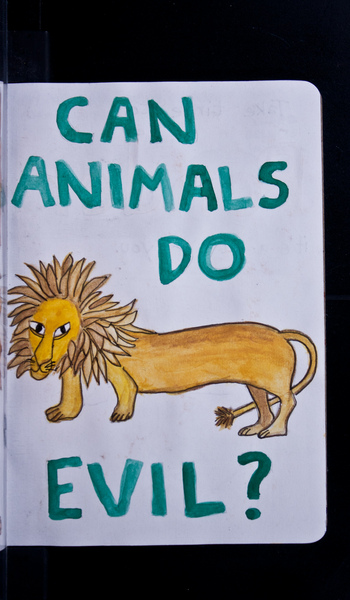 CAN
ANIMALS
DO
EVIL?